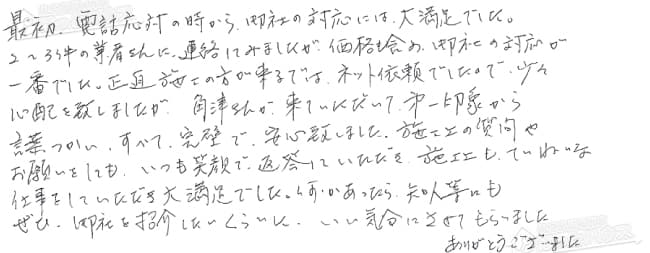 最初、電話応対の時から、御社の対応には、大満足でした。
2~3件の業者さんに、連絡してみましたが、価格も含め、御社の対応が
一番でした。正直施工の方が来るまでは、ネット依頼でしたので、少々
心配を致しましたが、角津さんが、来ていただいて、第一印象から
言葉づかい、すべて、完璧で、安心致しました。施工上の質問や
お願いをしても、いつも笑顔で、返答していただき、施工も、ていねいな
仕事をしていただき大満足でした。何かあったら、知人等にも
ぜひ、御社を紹介したいくらいに、いい気分にさせてもらいました
ありがとうございました